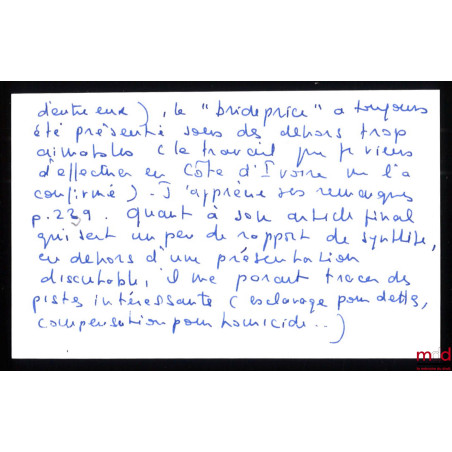 d'entre eux), le "brideprice" a toujours
été présenté sous des dehors trop
aimables (le travail que je viens
d'effectuer en Côte d'Ivoire me l'a
confirmé). J'apprécie ses remarques
p. 229. Quant à son article final
qui sert un peu de rapport de synthèse,
en dehors d'une présentation
discutable, il me paraît tracer des
pistes intéressantes (esclavage pour dettes,
compensation pour homicide...)